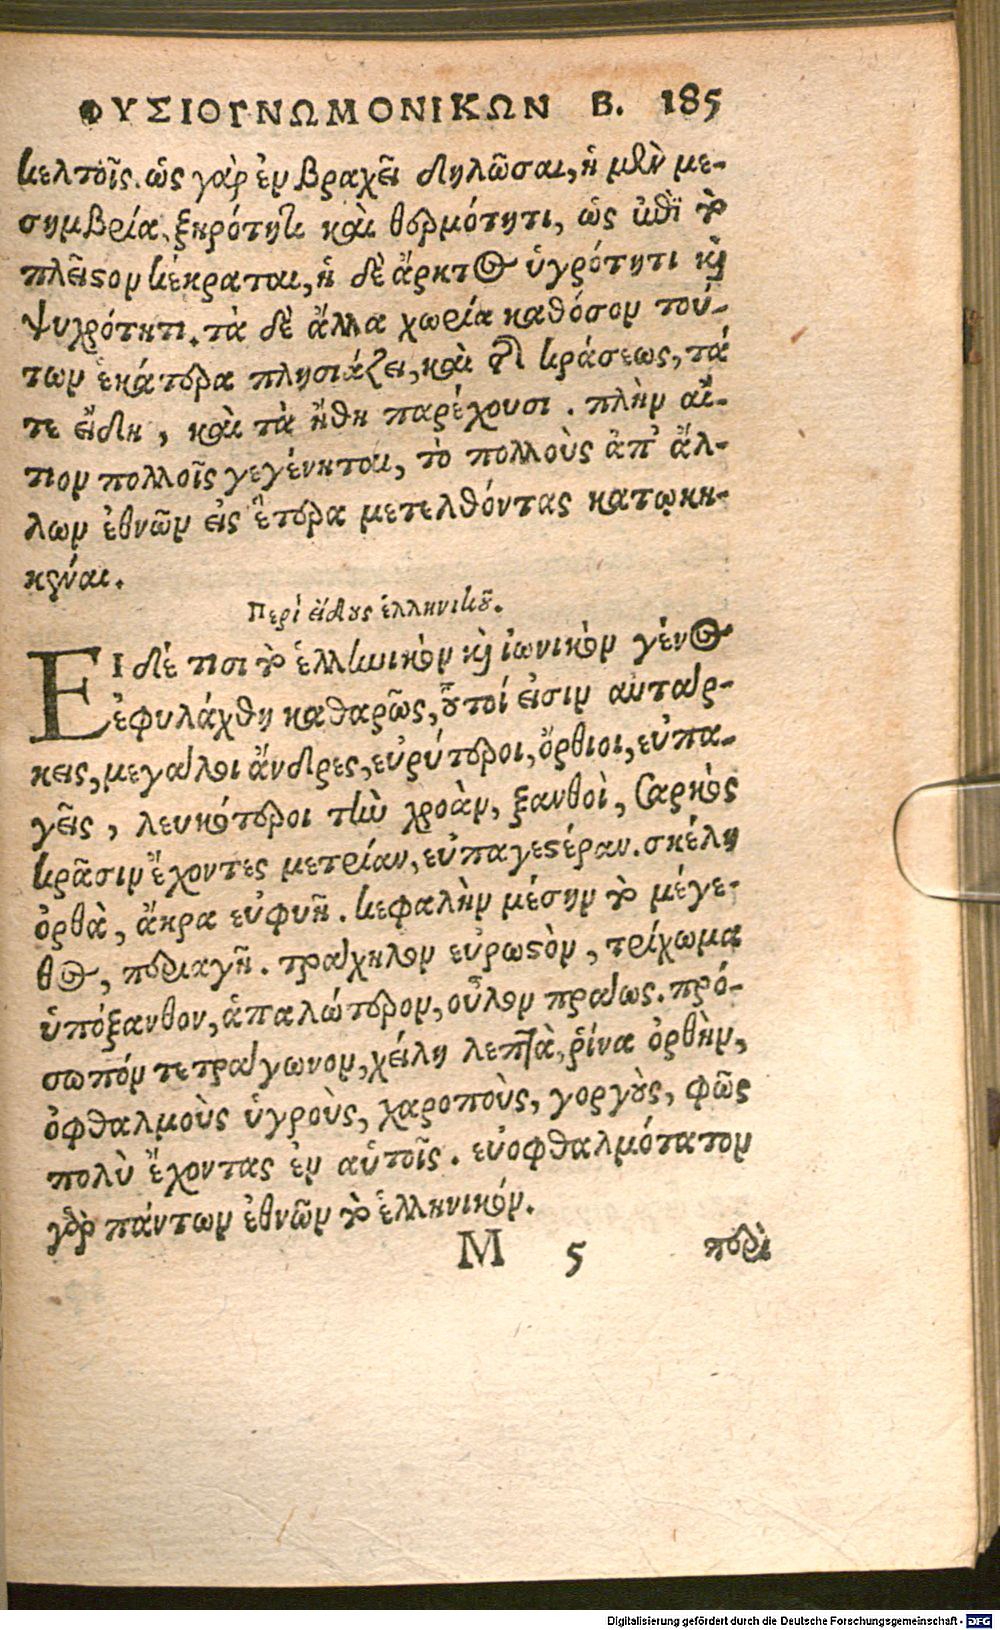 ΦΥΣΙΟΓΝΩΜΟΝΙΚΩΝ Β. 185
κελτοῖς. ὡς γὰρ ἐν βραχεῖ δηλῶσαι, ἡ μὲν με-
σημβρία, ξηρότητι καὶ θερμότητι, ὡς ἐπὶ τὸ
πλεῖστον κέκραται, ἡ δὲ ἄρκτος ὑγρότητι καὶ
ψυχρότητι. τὰ δὲ ἄλλα χωρία καθόσον τού-
των ἑκάτερα πλησιάζει, καὶ τῆς κράσεως, τά
τε εἴδη, καὶ τὰ ἤθη παρέχουσι. πλὴν αἴ-
τιον πολλοῖς γεγένηται, τὸ πολλοὺς ἀπ' ἄλ-
λων ἐθνῶν εἰς ἕτερα μετελθόντας κατῳκη-
κέναι.
Περὶ εἴδους ἑλληνικοῦ.
ΕΙ δέ τισι τὸ ἑλληνικὸν καὶ ἰωνικὸν γένος
ἐφυλάχθη καθαρῶς, οὗτοί εἰσιν αὐτάρ-
κεις, μεγάλοι ἄνδρες, εὐρύτεροι, ὄρθιοι, εὐπα-
γεῖς, λευκότεροι τὴν χροὰν, ξανθοὶ, σαρκὸς
κρᾶσιν ἔχοντες μετρίαν, εὐπαγεστέραν. σκέλη
ὀρθὰ, ἄκρα εὐφυῆ. κεφαλὴν μέσην τὸ μέγε-
θος, περιαγῆ. τράχηλον εὔρωστον, τρίχωμα
ὑπόξανθον, ἁπαλώτερον, οὖλον πράως. πρό-
σωπόν τετράγωνον, χείλη λεπτὰ, ῥίνα ὀρθὴν,
ὀφθαλμοὺς ὑγροὺς, χαροποὺς, γοργοὺς, φῶς
πολὺ ἔχοντας ἐν αὑτοῖς. εὐοφθαλμότατον
γὰρ πάντων ἐθνῶν τὸ ἑλληνικόν.
M 5 περὶ
Digitalisierung gefördert durch die Deutsche Forschungsgemeinschaft - DFG